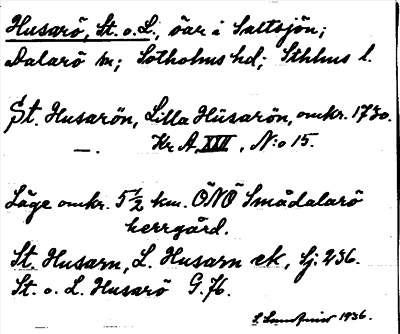 Husarö, St. o. L., öar i Saltsjön;
Dalarö sn; Sotholms hd; Sthlms l.
St. Husarön, Lilla Hüsarön, omkr. 1730.
—. Kr A, XXVI, N:o 15.
Läge omkr. 5 1/2 km. ÖNÖ Smådalarö
herrgård.
St. Husarn, L. Husarn ek, Sj. 236.
St. o. L. Husarö G. 76.
1936.